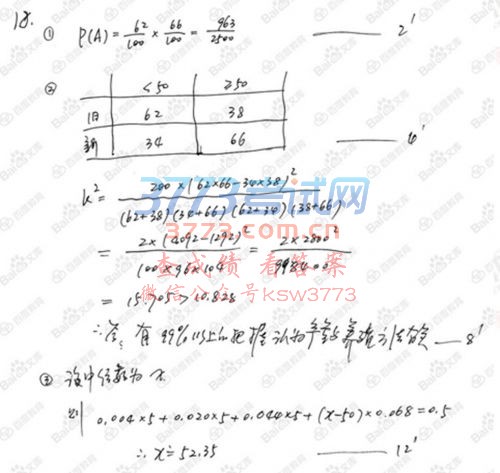 18.
① P(A) = 62/100 × 66/100 = 963/2500 —— 2'
②
<50 ≥50
旧 62 38
新 34 66 —— 6'
k² = 200×(62×66-34×38)² / (62+38)(34+66)(62+34)(38+66)
= 2×(4092-1292)² / 100×96×104 = 2×2800² / 998400
= 15.705>10.828
∴ 有99%以上的把握认为 与养殖方法有关 —— 8'
③ 设中位数为x
则 0.004×5+0.020×5+0.044×5+(x-50)×0.068=0.5
∴ x≐52.35 —— 12'
3773考试网
3773.com.cn
查成绩 看答案
微信公众号 ksw3773